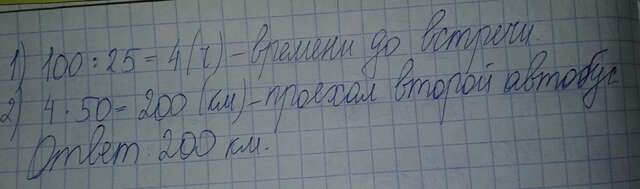 1) 100 : 25 = 4 (ч) - времени до встречи.
2) 4 · 50 = 200 (км) - проехал второй автобус
Ответ: 200 км.